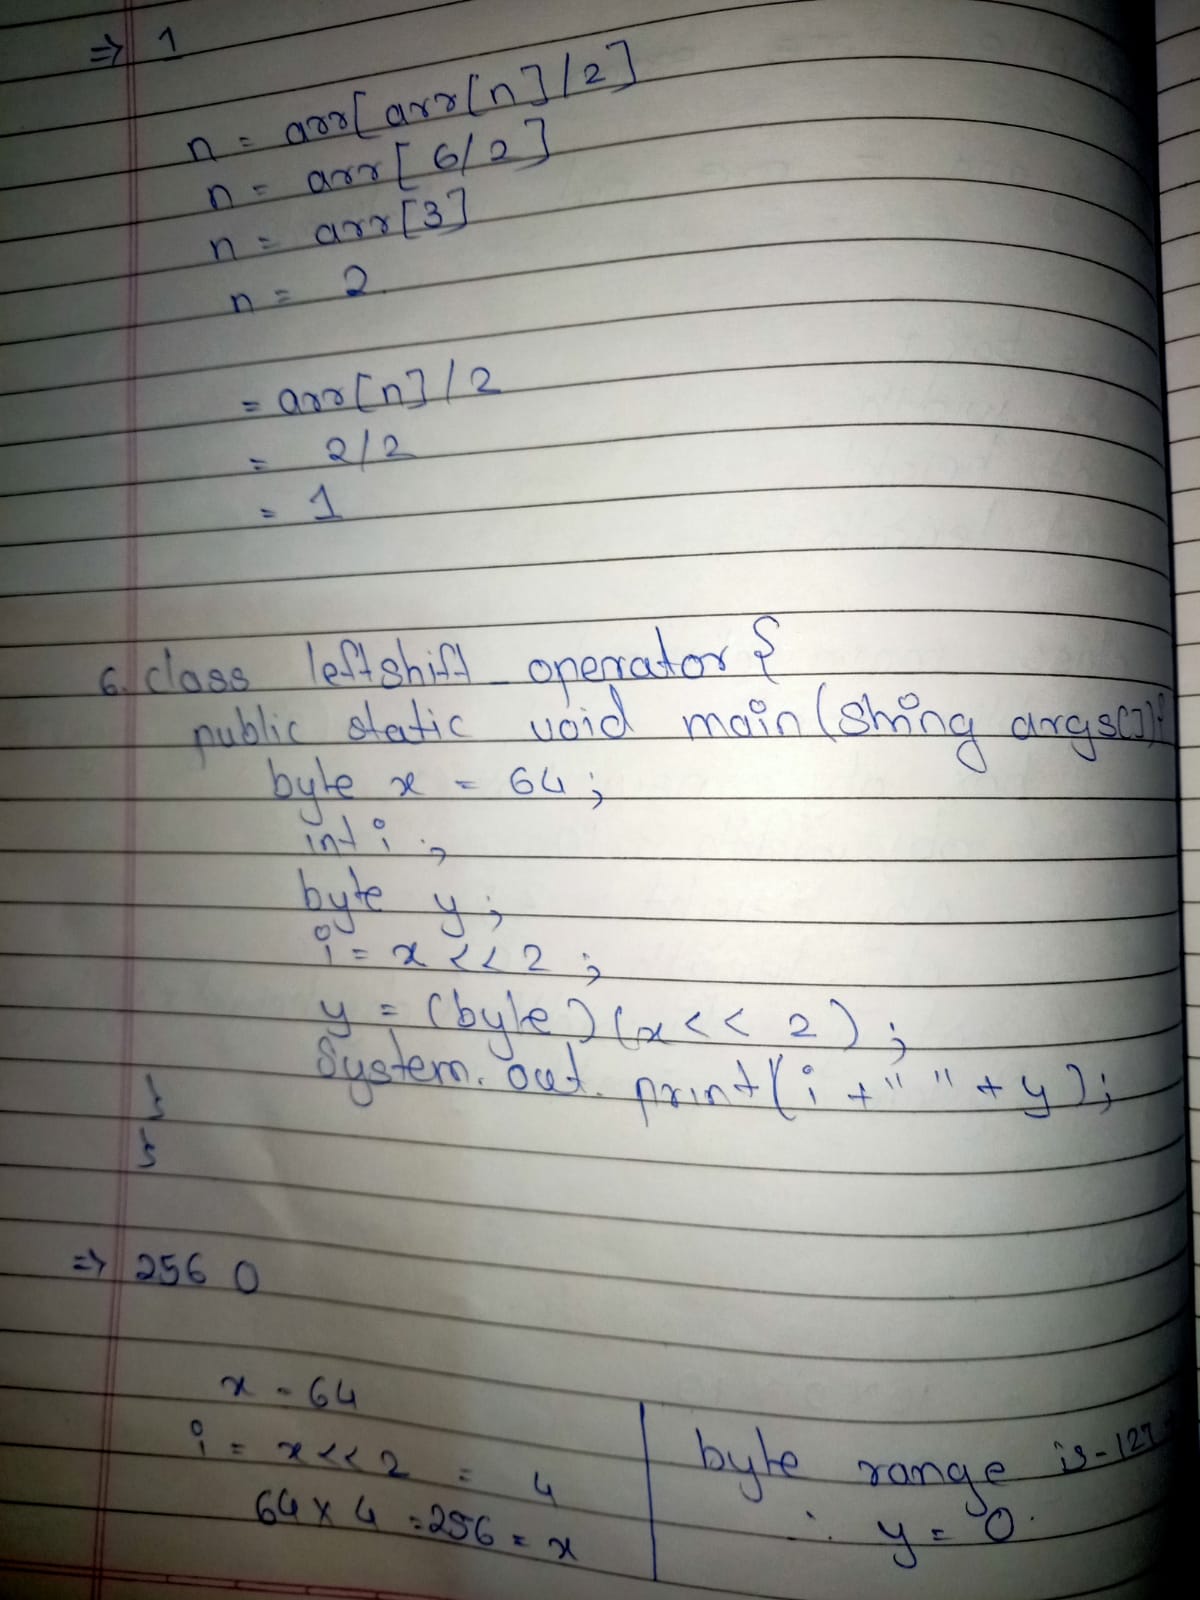 ⇒ 1
n = arr[arr[n]/2]
n = arr[6/2]
n = arr[3]
n = 2
= arr[n]/2
= 2/2
= 1
6. class leftshift_operator {
public static void main(String args[]){
byte x = 64;
int i;
byte y;
i = x << 2;
y = (byte)(x << 2);
System.out.print(i + " " + y);
}
}
⇒ 256 0
x = 64
i = x << 2 = 4
64 x 4 = 256 = x
byte range is -127
∴ y = 0.